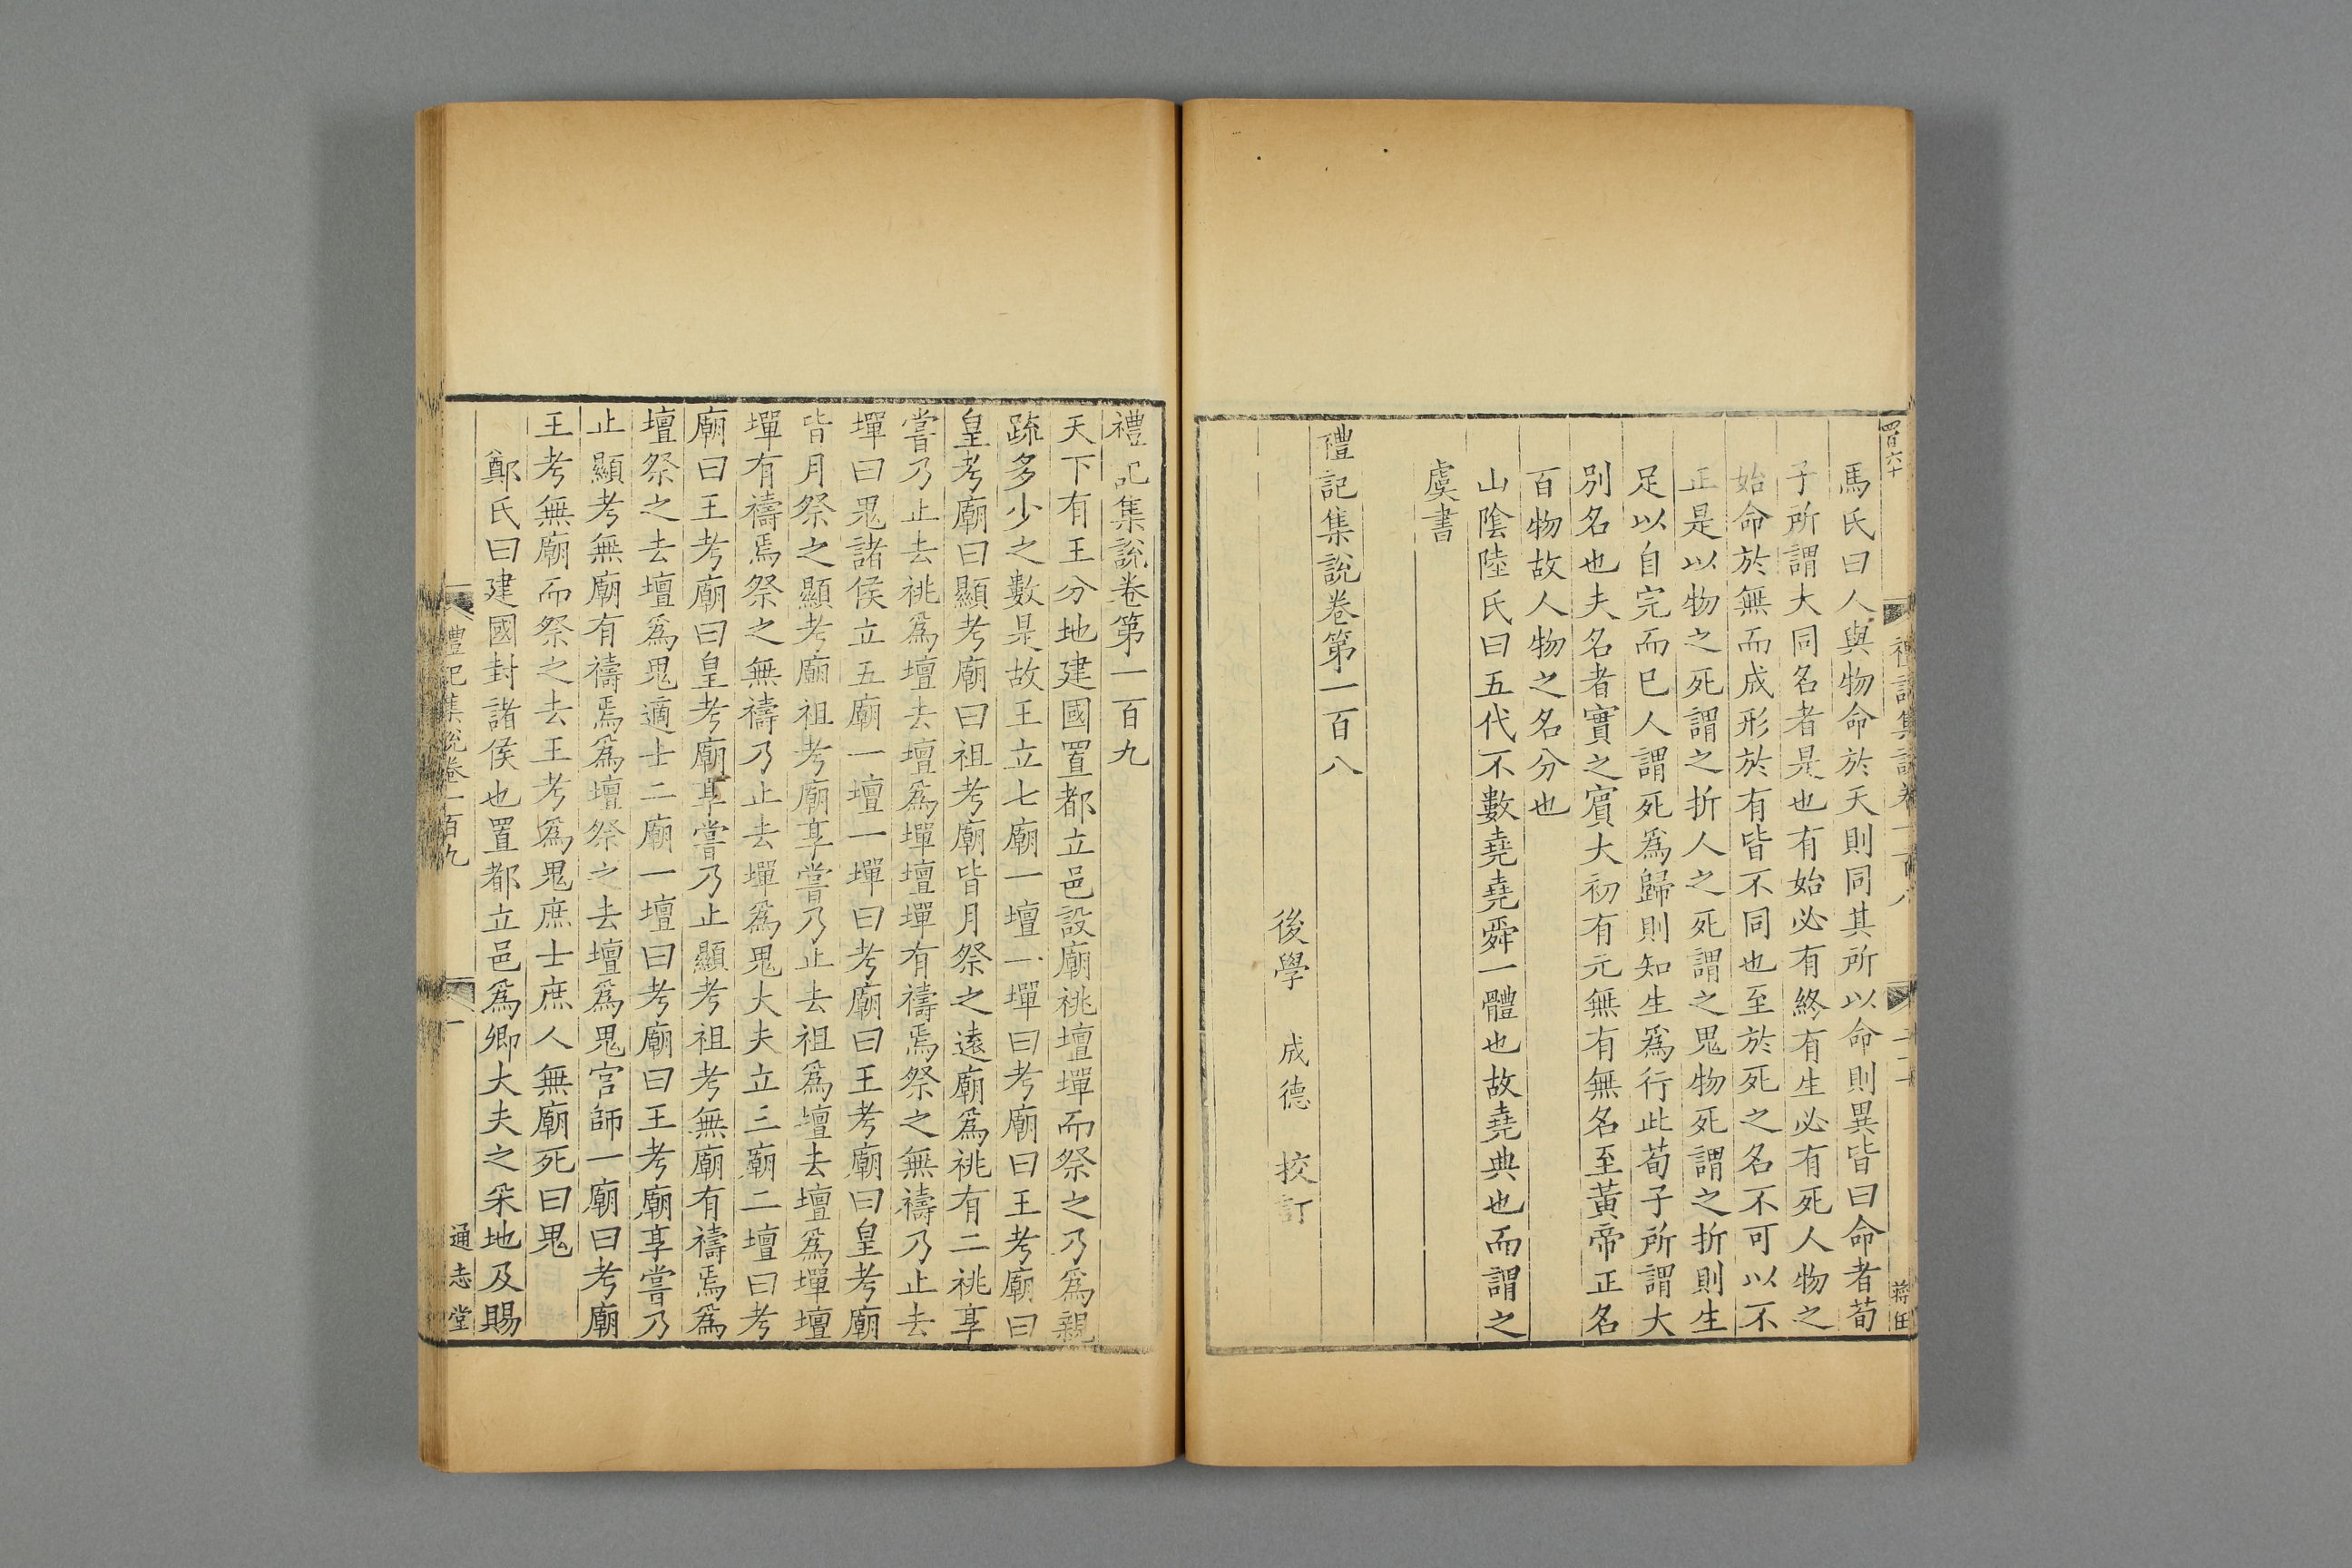 四百六十
禮記集說卷一百八
二十一
蔣任
馬氏曰人與物命於天則同其所以命則異皆曰命者荀
子所謂大同名者是也有始必有終有生必有死人物之
始命於無而成形於有皆不同也至於死之名不可以不
正是以物之死謂之折人之死謂之鬼物死謂之折則生
足以自完而已人謂死爲歸則知生爲行此荀子所謂大
別名也夫名者實之賓大初有元無有無名至黃帝正名
百物故人物之名分也
山陰陸氏曰五代不數堯堯舜一體也故堯典也而謂之
虞書
禮記集說卷第一百八
後學 成德 挍訂
禮記集說卷第一百九
天下有王分地建國置都立邑設廟祧壇墠而祭之乃爲親
疏多少之數是故王立七廟一壇一墠曰考廟曰王考廟曰
皇考廟曰顯考廟曰祖考廟皆月祭之遠廟爲祧有二祧享
嘗乃止去祧爲壇去壇爲墠壇墠有禱焉祭之無禱乃止去
墠曰鬼諸侯立五廟一壇一墠曰考廟曰王考廟曰皇考廟
皆月祭之顯考廟祖考廟享嘗乃止去祖爲壇去壇爲墠壇
墠有禱焉祭之無禱乃止去墠爲鬼大夫立三廟二壇曰考
廟曰王考廟曰皇考廟享嘗乃止顯考祖考無廟有禱焉爲
壇祭之去壇爲鬼適士二廟一壇曰考廟曰王考廟享嘗乃
止顯考無廟有禱焉爲壇祭之去壇爲鬼官師一廟曰考廟
王考無廟而祭之去王考爲鬼庶士庶人無廟死曰鬼
鄭氏曰建國封諸侯也置都立邑爲卿大夫之采地及賜
禮記集說卷一百九
一
通志堂